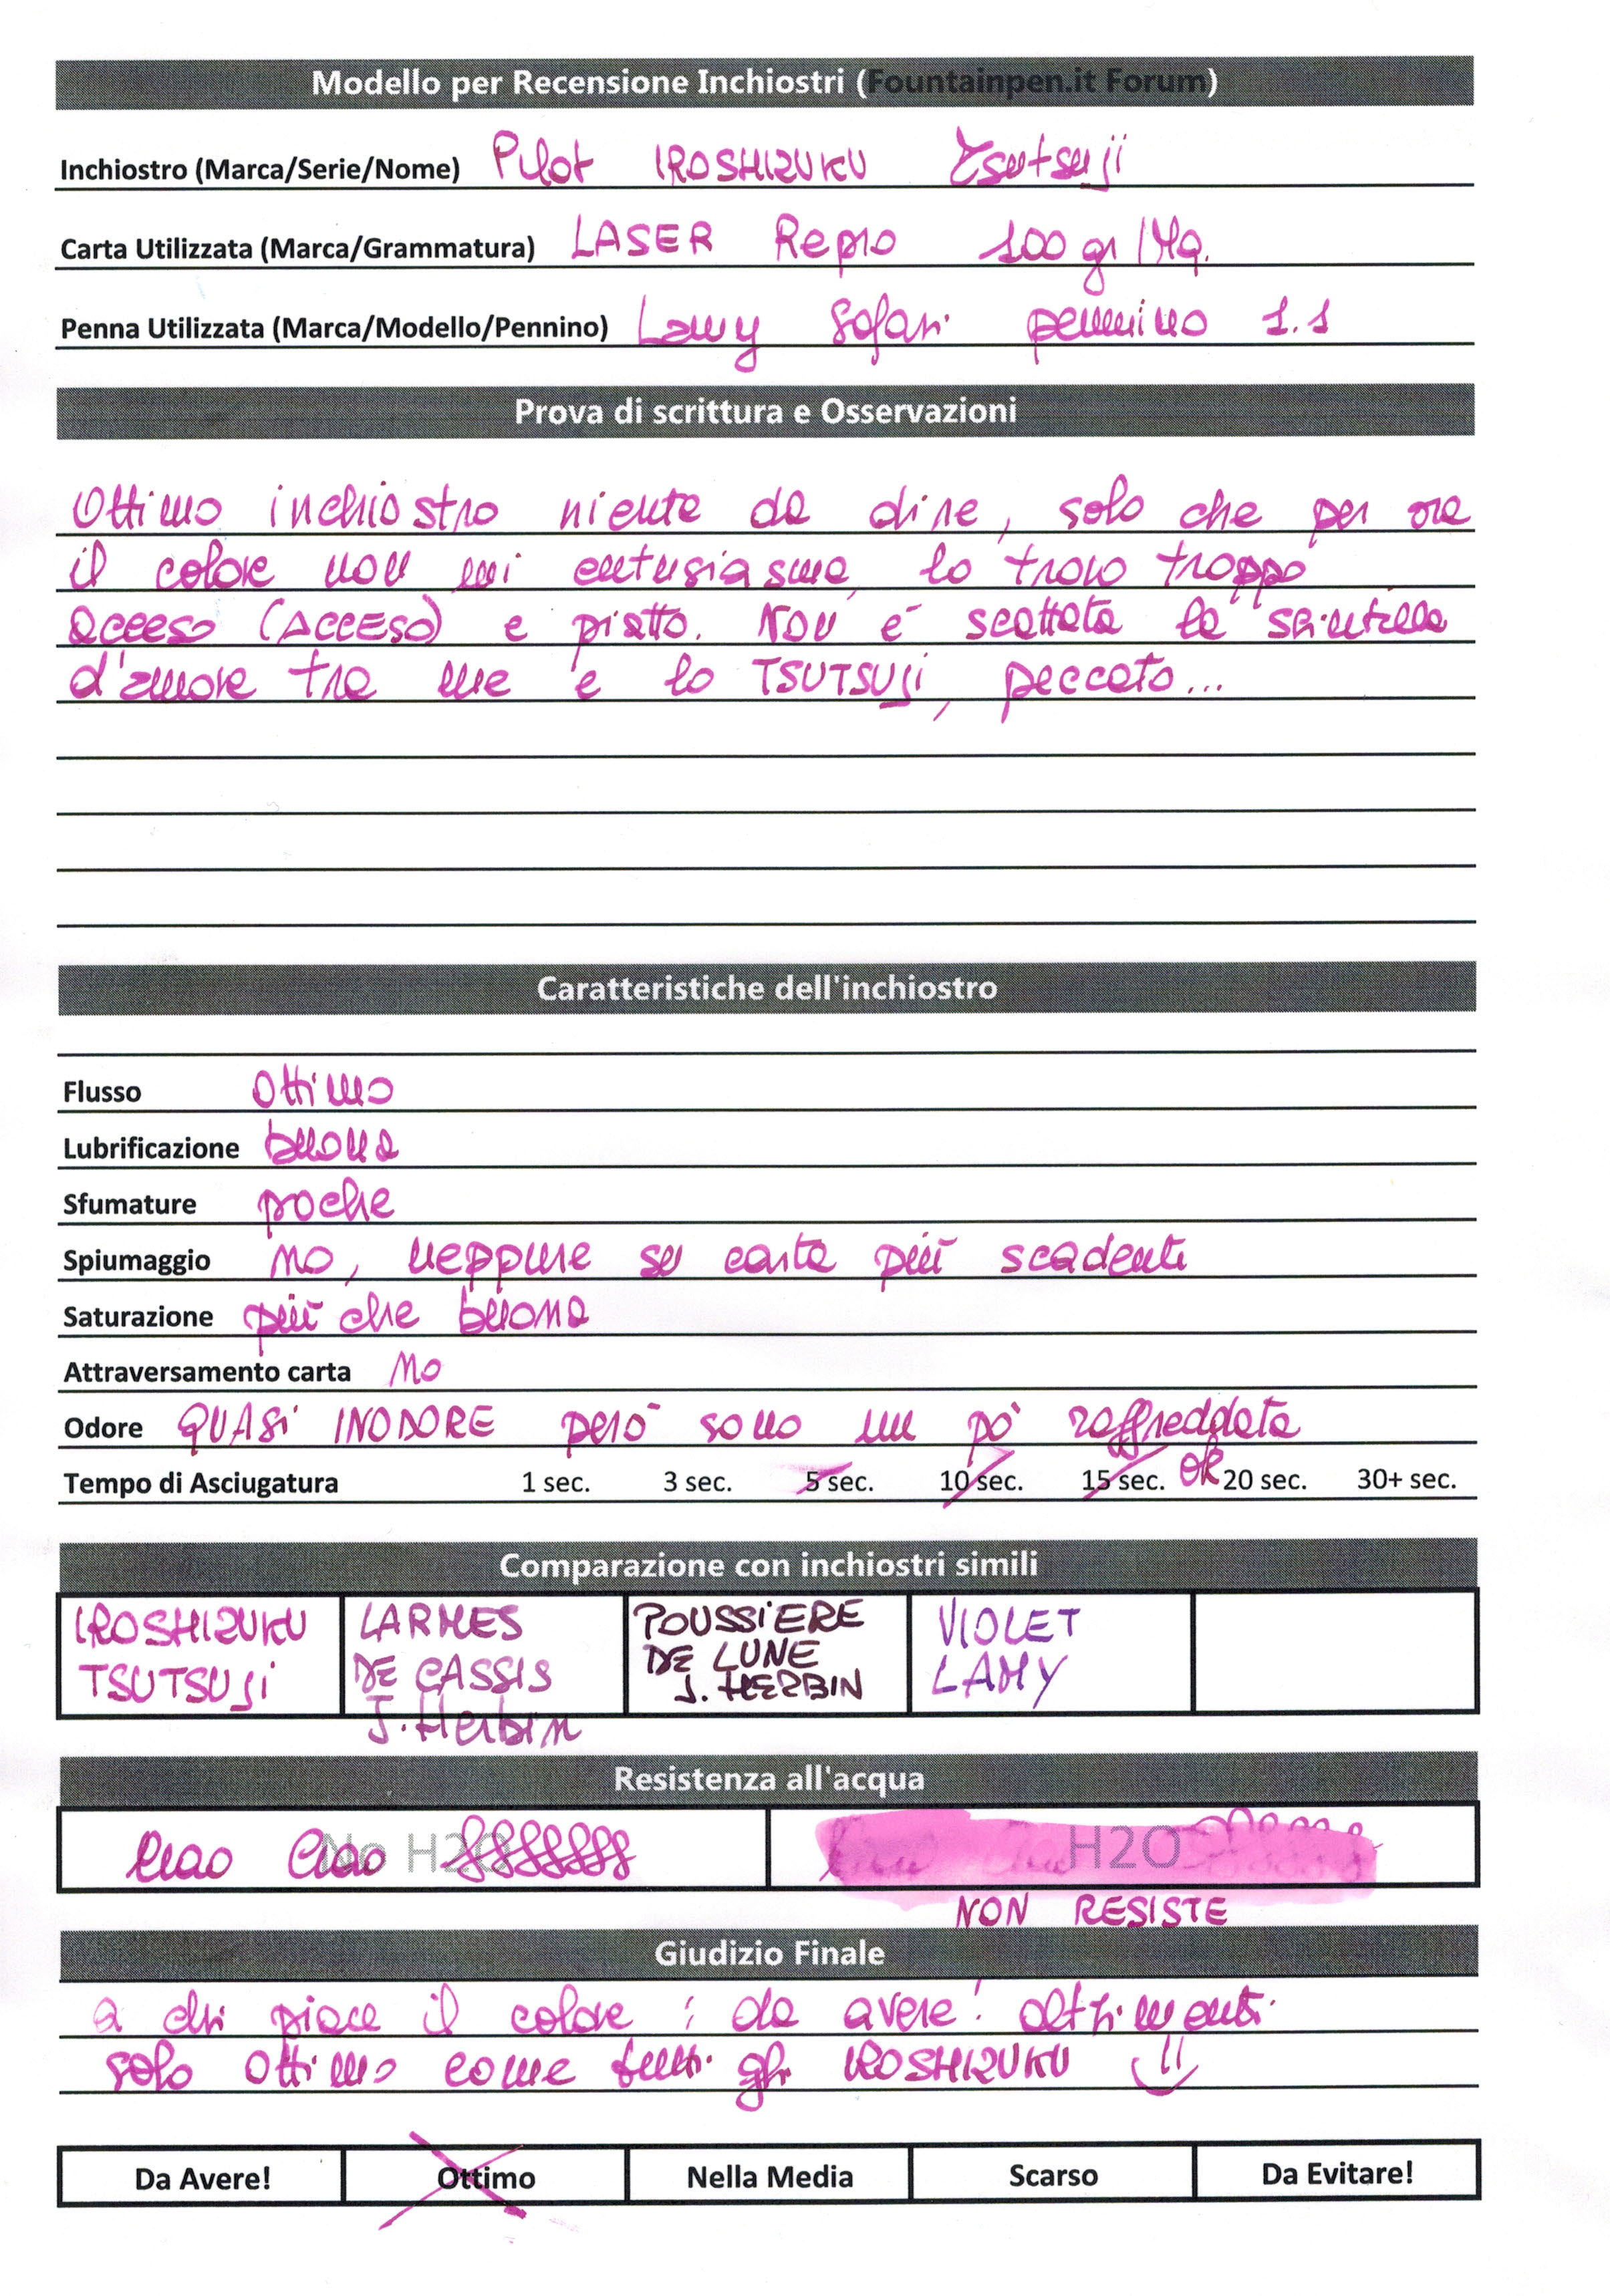 Modello per Recensione Inchiostri (Fountainpen.it Forum)
Inchiostro (Marca/Serie/Nome) Pilot IROSHIZUKU Tsutsuji
Carta Utilizzata (Marca/Grammatura) LASER Repro 100 gr/Mq.
Penna Utilizzata (Marca/Modello/Pennino) Lamy Safari pennino 1.1
Prova di scrittura e Osservazioni
Ottimo inchiostro niente da dire, solo che per ora
il colore non mi entusiasma, lo trovo troppo
acceso (ACCESO) e piatto. Non è scattata la scintilla
d'amore tra me e lo TSUTSUji, peccato...
Caratteristiche dell'inchiostro
Flusso Ottimo
Lubrificazione buona
Sfumature poche
Spiumaggio no, neppure su carta più scadente
Saturazione più che buona
Attraversamento carta No
Odore QUASi INODORE però sono un pò raffreddata
Tempo di Asciugatura 1 sec. 3 sec. 5 sec. 10 sec. 15 sec. OK 20 sec. 30+ sec.
Comparazione con inchiostri simili
IROSHIZUKU LARMES POUSSiERE VIOLET
TSUTSUji DE CASSIS DE LUNE LAMY
J. Herbin J. HERBIN
Resistenza all'acqua
Ciao Ciao No H2O H2O
NON RESISTE
Giudizio Finale
a chi piace il colore : da avere! altrimenti
solo Ottimo come tutti gli IROSHIZUKU
Da Avere! Ottimo Nella Media Scarso Da Evitare!